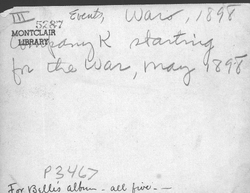 III
5287
MONTCLAIR
LIBRARY
Events, Wars, 1898
Company K starting
for the War, May 1898
P3467
For Belle's album - all five -